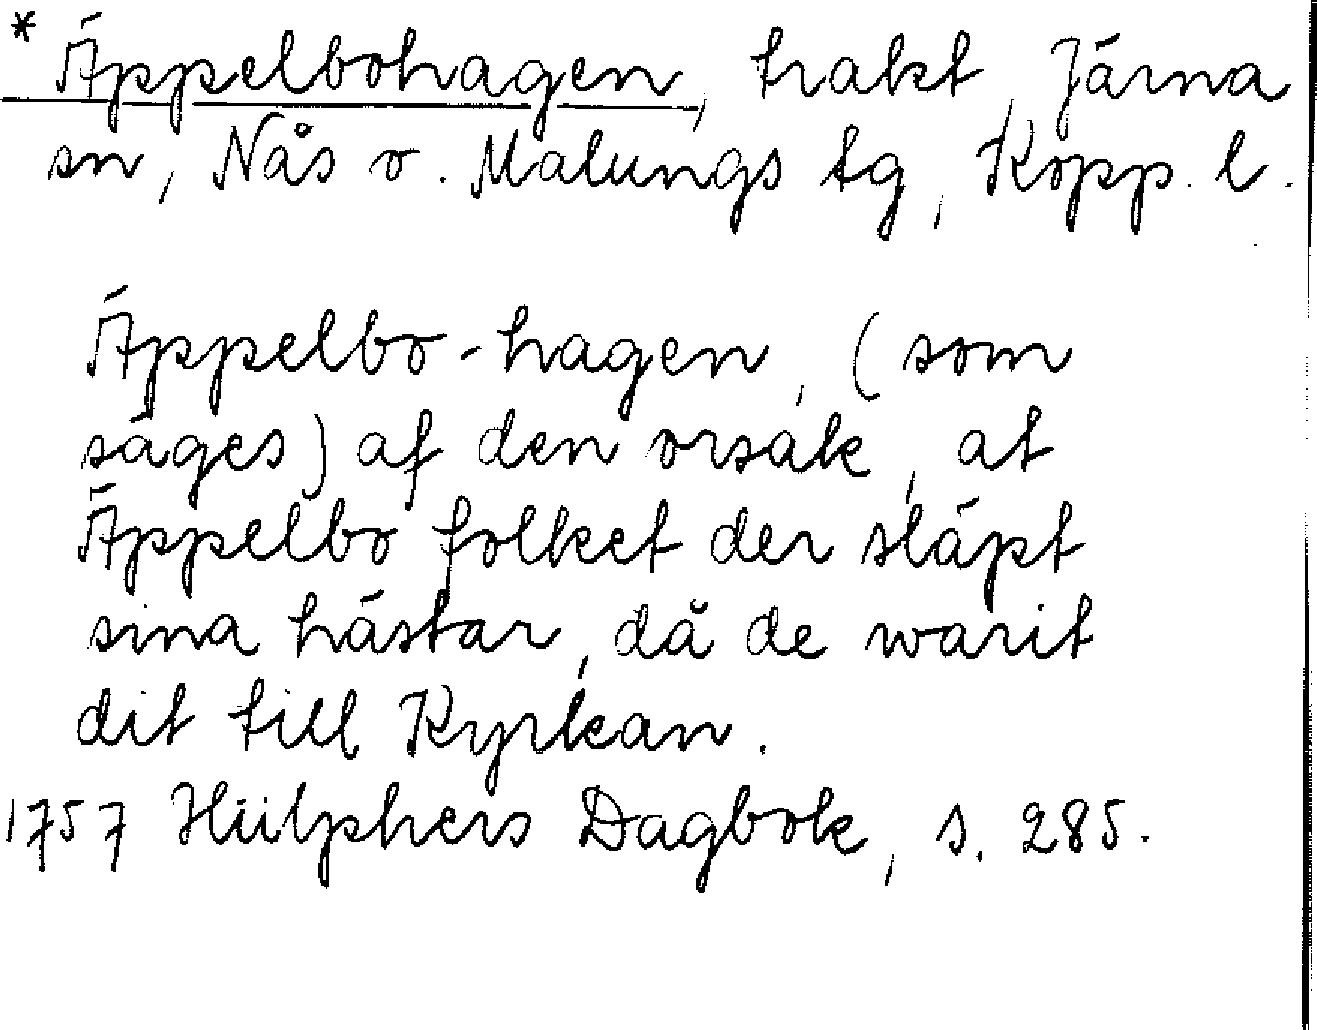 * Äppelbohagen, trakt, Järna
sn, Nås o. Malungs tg, Kopp. l.
Äppelbo-hagen, (som
säges) af den orsak, at
Äppelbo folket der släpt
sina hästar, då de warit
dit till Kyrkan.
1757 Hülphers Dagbok, s. 285.